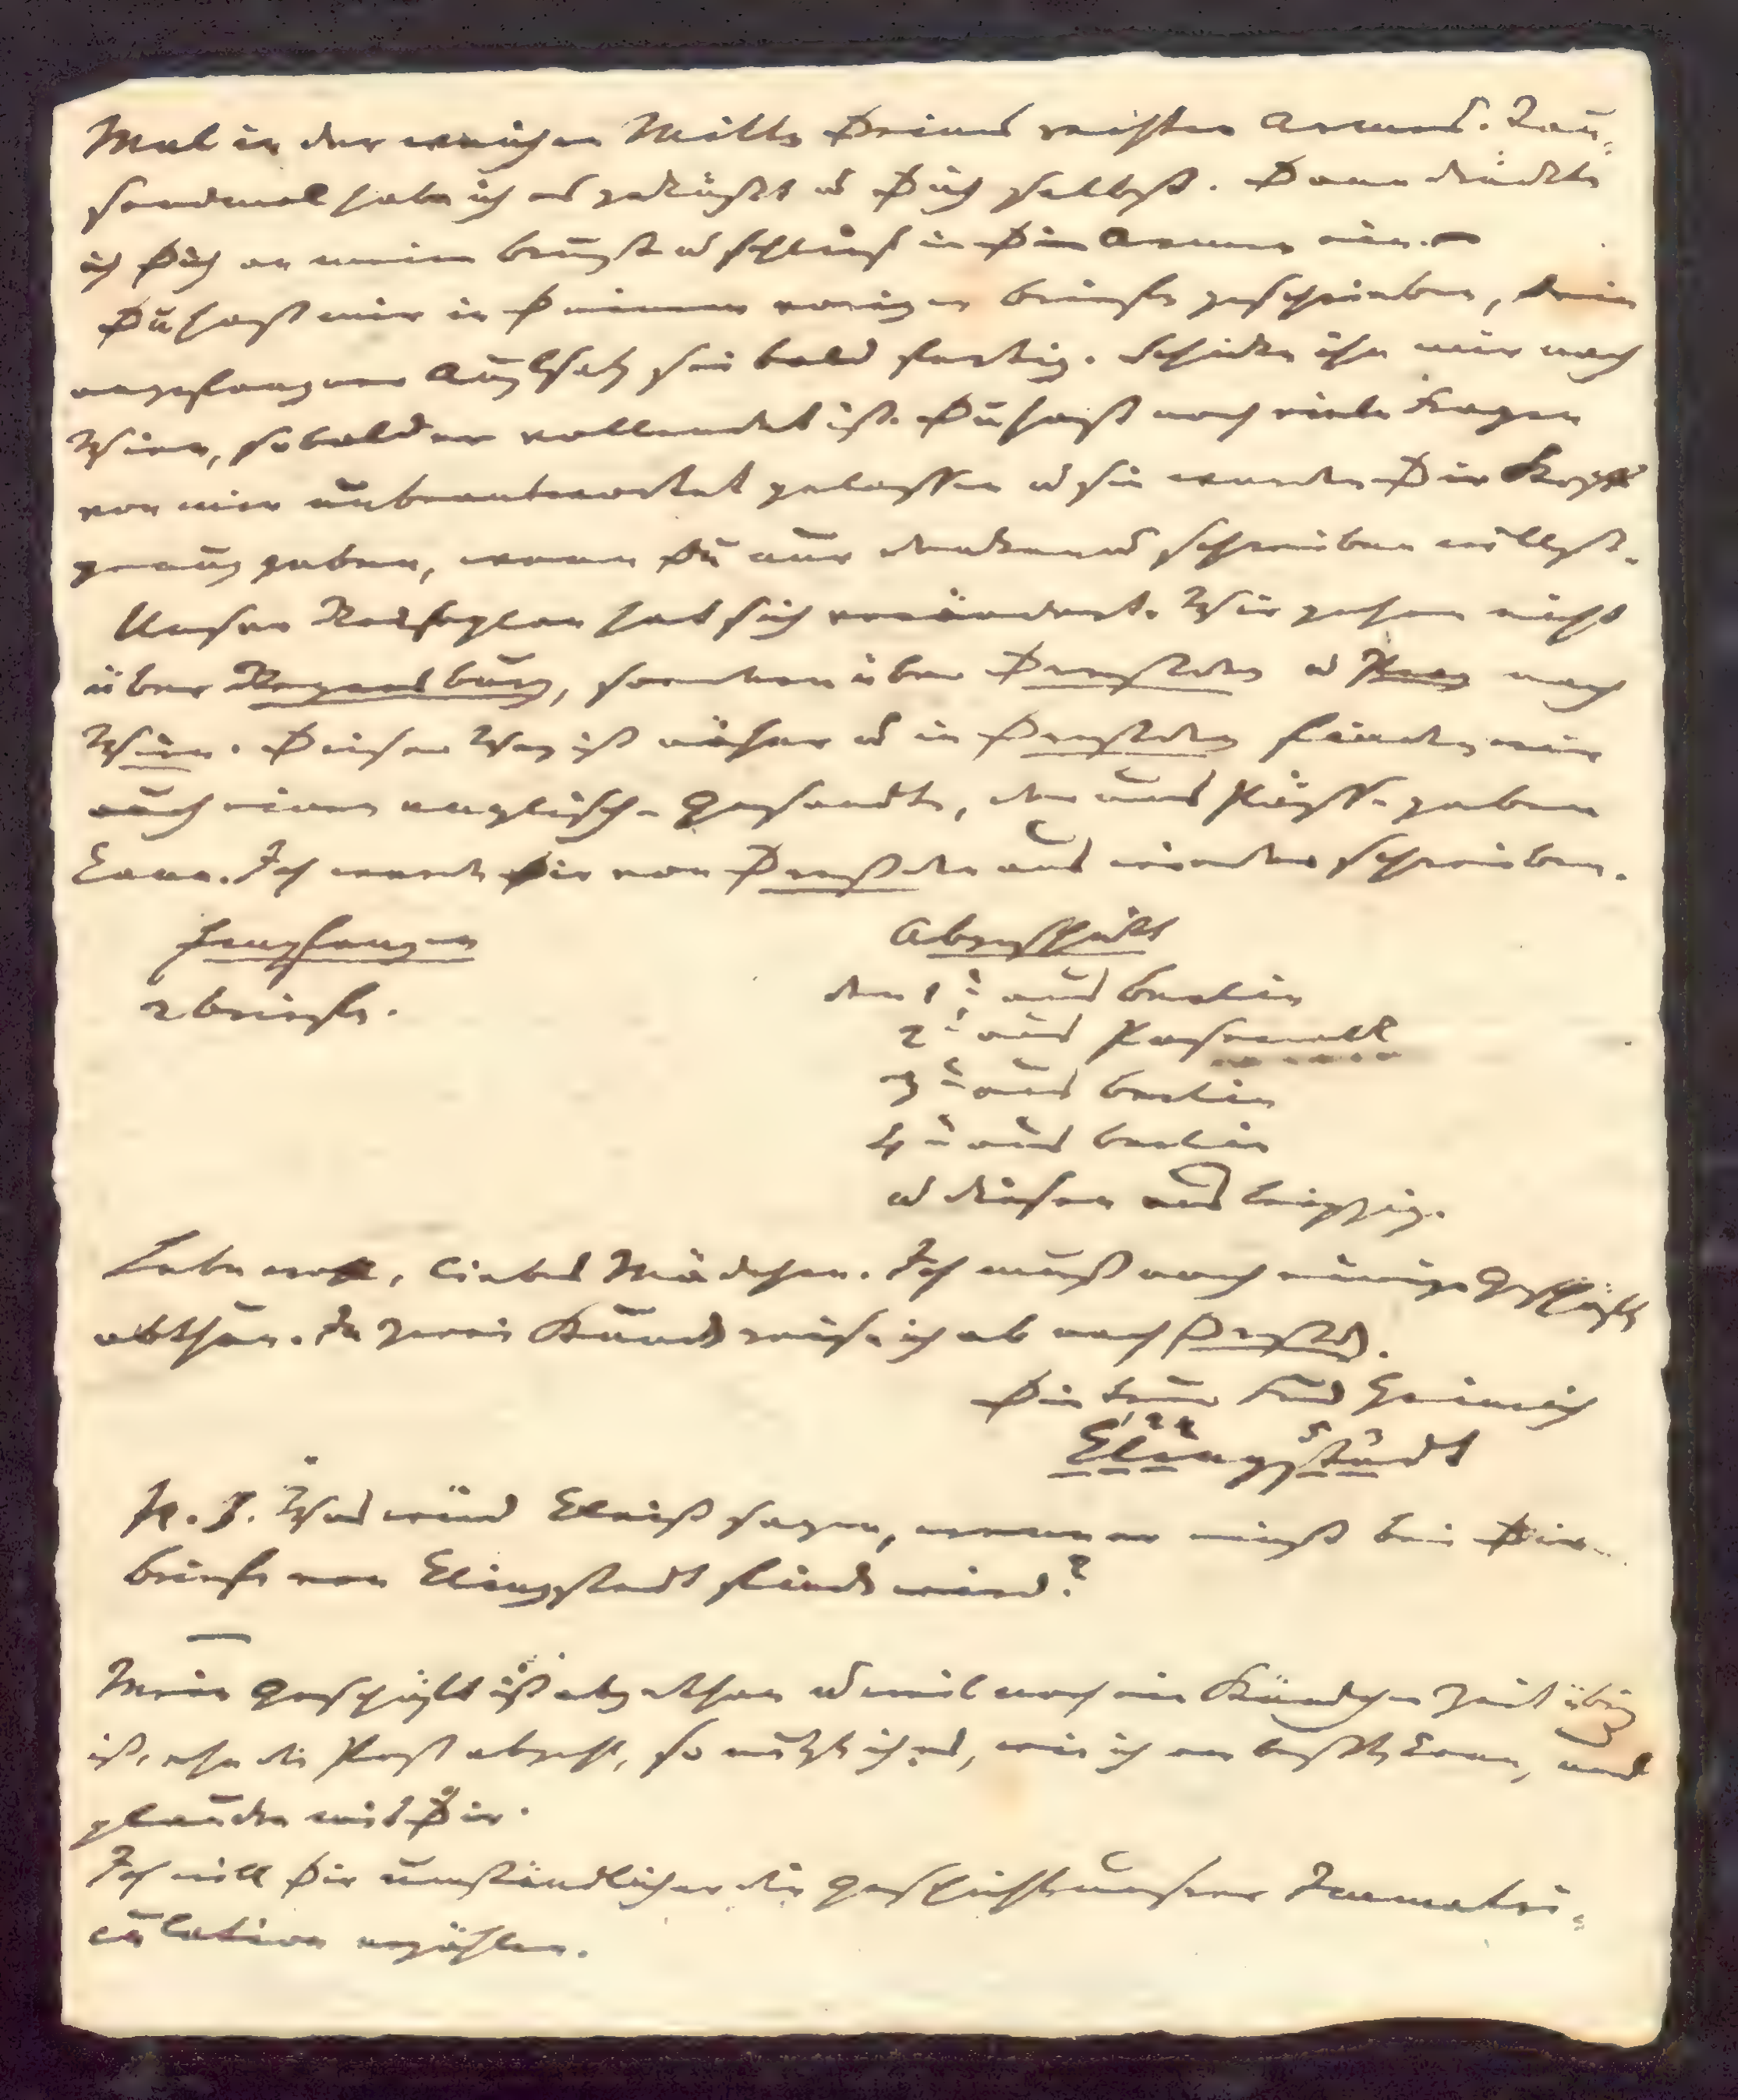 Mal in der weichen Mitte Deines rechten Armes. Tau-
sendmal habe ich es geküßt u Dich selbst. Dann drückte
ich Dich an meine Brust u schlief in Dein Armen ein. —
Du hast mir in Deinem vorigen Briefe geschrieben, Dein
angefangner Aufsatz sei bald fertig. Schicke ihn mir nach
Wien, sobald er vollendet ist. Du hast noch viele Fragen
von mir unbeantwortet gelassen u sie werden Dir Stoff
genug geben, wenn Du nur denken u schreiben willst.
Unser Reiseplan hat sich verändert. Wir gehen nicht
über Regensburg, sondern über Dresden u Prag nach
Wien. Dieser Weg ist näher u in Dresden finden wir
auch einen englischen Gesandten, der uns Pässe geben
kann. Ich werde Dir von Dresden aus wieder schreiben.
Empfangen
2 Briefe.
Abgeschickt
den 1t aus Berlin
2t aus Pasewalk
3t aus Berlin
4t aus Berlin
u diesen aus Leipzig.
Lebe wohl, liebes Mädchen. Ich muß noch einige Geschäfte
abthun. In zwei Stunden reise ich ab nach Dresden.
Dein treuer Freund Heinrich
Klingstedt
N. S. Was wird Kleist sagen, wenn er einst bei Dir
Briefe von Klingstedt finden wird?
Mein Geschäft ist abgethan u weil noch ein Stündchen Zeit übrig
ist, ehe die Post abgeht, so nutze ich es, wie ich am besten kann, und
plaudre mit Dir.
Ich will Dir umständlicher die Geschichte unserer Immatri-
culation erzählen.